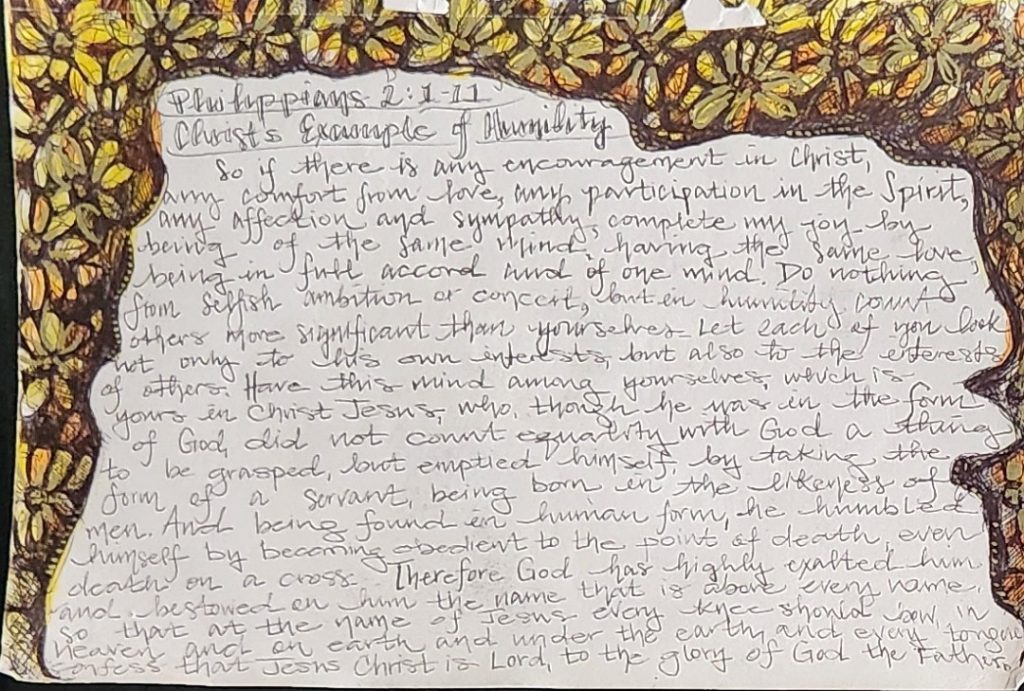 Philippians 2:1-11
Christ's Example of Humility
So if there is any encouragement in Christ,
any comfort from love, any participation in the Spirit,
any affection and sympathy, complete my joy by
being of the same mind, having the same love,
being in full accord and of one mind. Do nothing
from selfish ambition or conceit, but in humility count
others more significant than yourselves. Let each of you look
not only to his own interests, but also to the interests
of others. Have this mind among yourselves, which is
yours in Christ Jesus, who, though he was in the form
of God, did not count equality with God a thing
to be grasped, but emptied himself, by taking the
form of a servant, being born in the likeness of
men. And being found in human form, he humbled
himself by becoming obedient to the point of death, even
death on a cross. Therefore God has highly exalted him
and bestowed on him the name that is above every name,
so that at the name of Jesus every knee should bow, in
heaven and on earth and under the earth, and every tongue
confess that Jesus Christ is Lord, to the glory of God the Father.